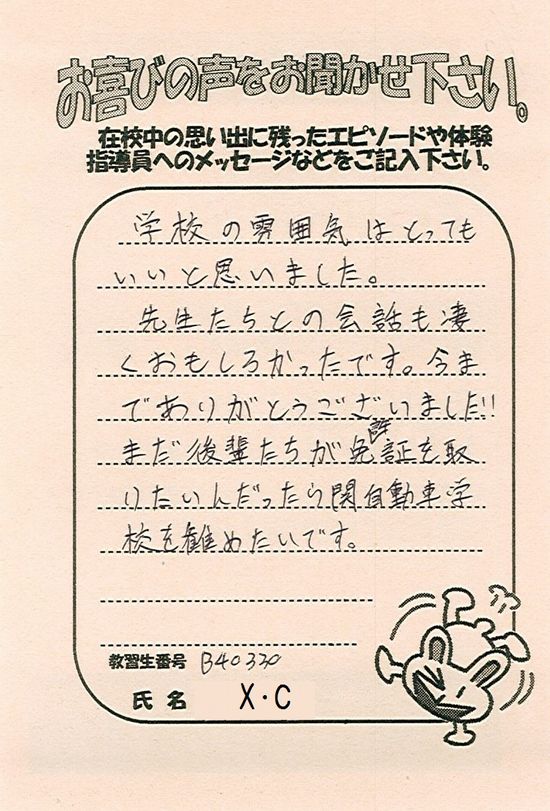 お喜びの声をお聞かせ下さい。
在校中の思い出に残ったエピソードや体験
指導員へのメッセージなどをご記入下さい。
学校の雰囲気はとっても
いいと思いました。
先生たちとの会話も凄
くおもしろかったです。今ま
でありがとうございました!!
まだ後輩たちが免許証を取
りたいんだったら関自動車学
校を勧めたいです。
教習生番号 B40330
氏名 X・C